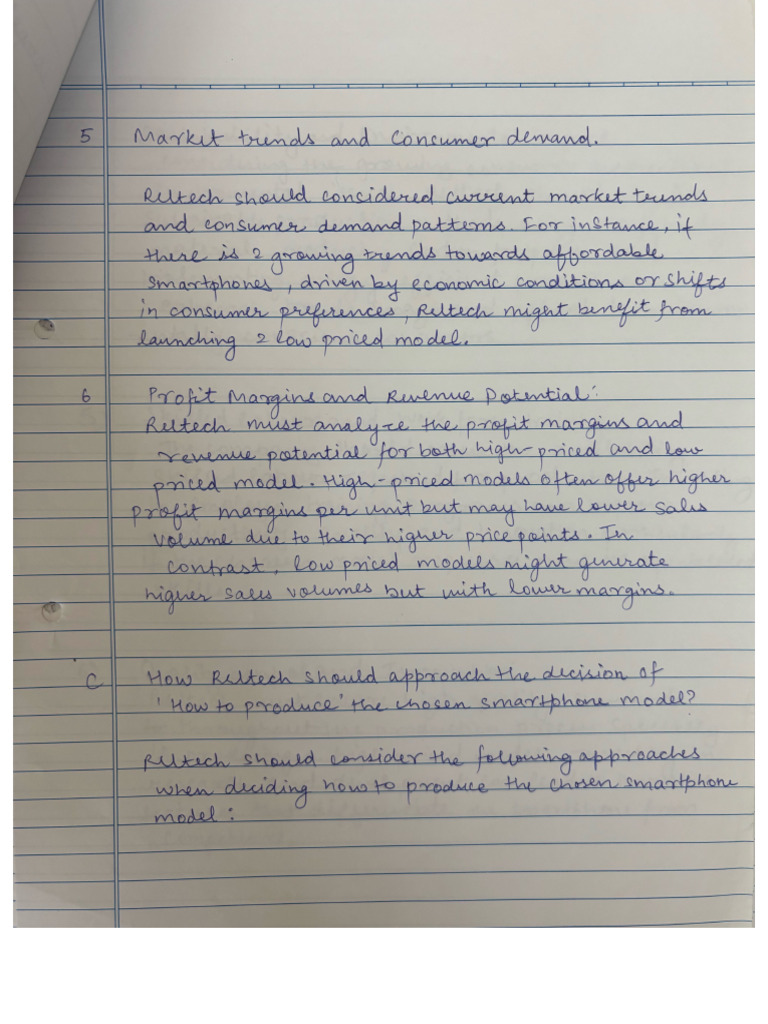 5 Market trends and Consumer demand.
Reltech should considered current market trends
and consumer demand patterns. For instance, if
there is a growing trends towards affordable
smartphones, driven by economic conditions or shifts
in consumer preferences, Reltech might benefit from
launching a low priced model.
6 Profit Margins and Revenue Potential:
Reltech must analyze the profit margins and
revenue potential for both high-priced and low
priced model. High-priced models often offer higher
profit margins per unit but may have lower sales
volume due to their higher price points. In
contrast, low priced models might generate
higher sales volumes but with lower margins.
C How Reltech should approach the decision of
'How to produce' the chosen smartphone model?
Reltech should consider the following approaches
when deciding how to produce the chosen smartphone
model: